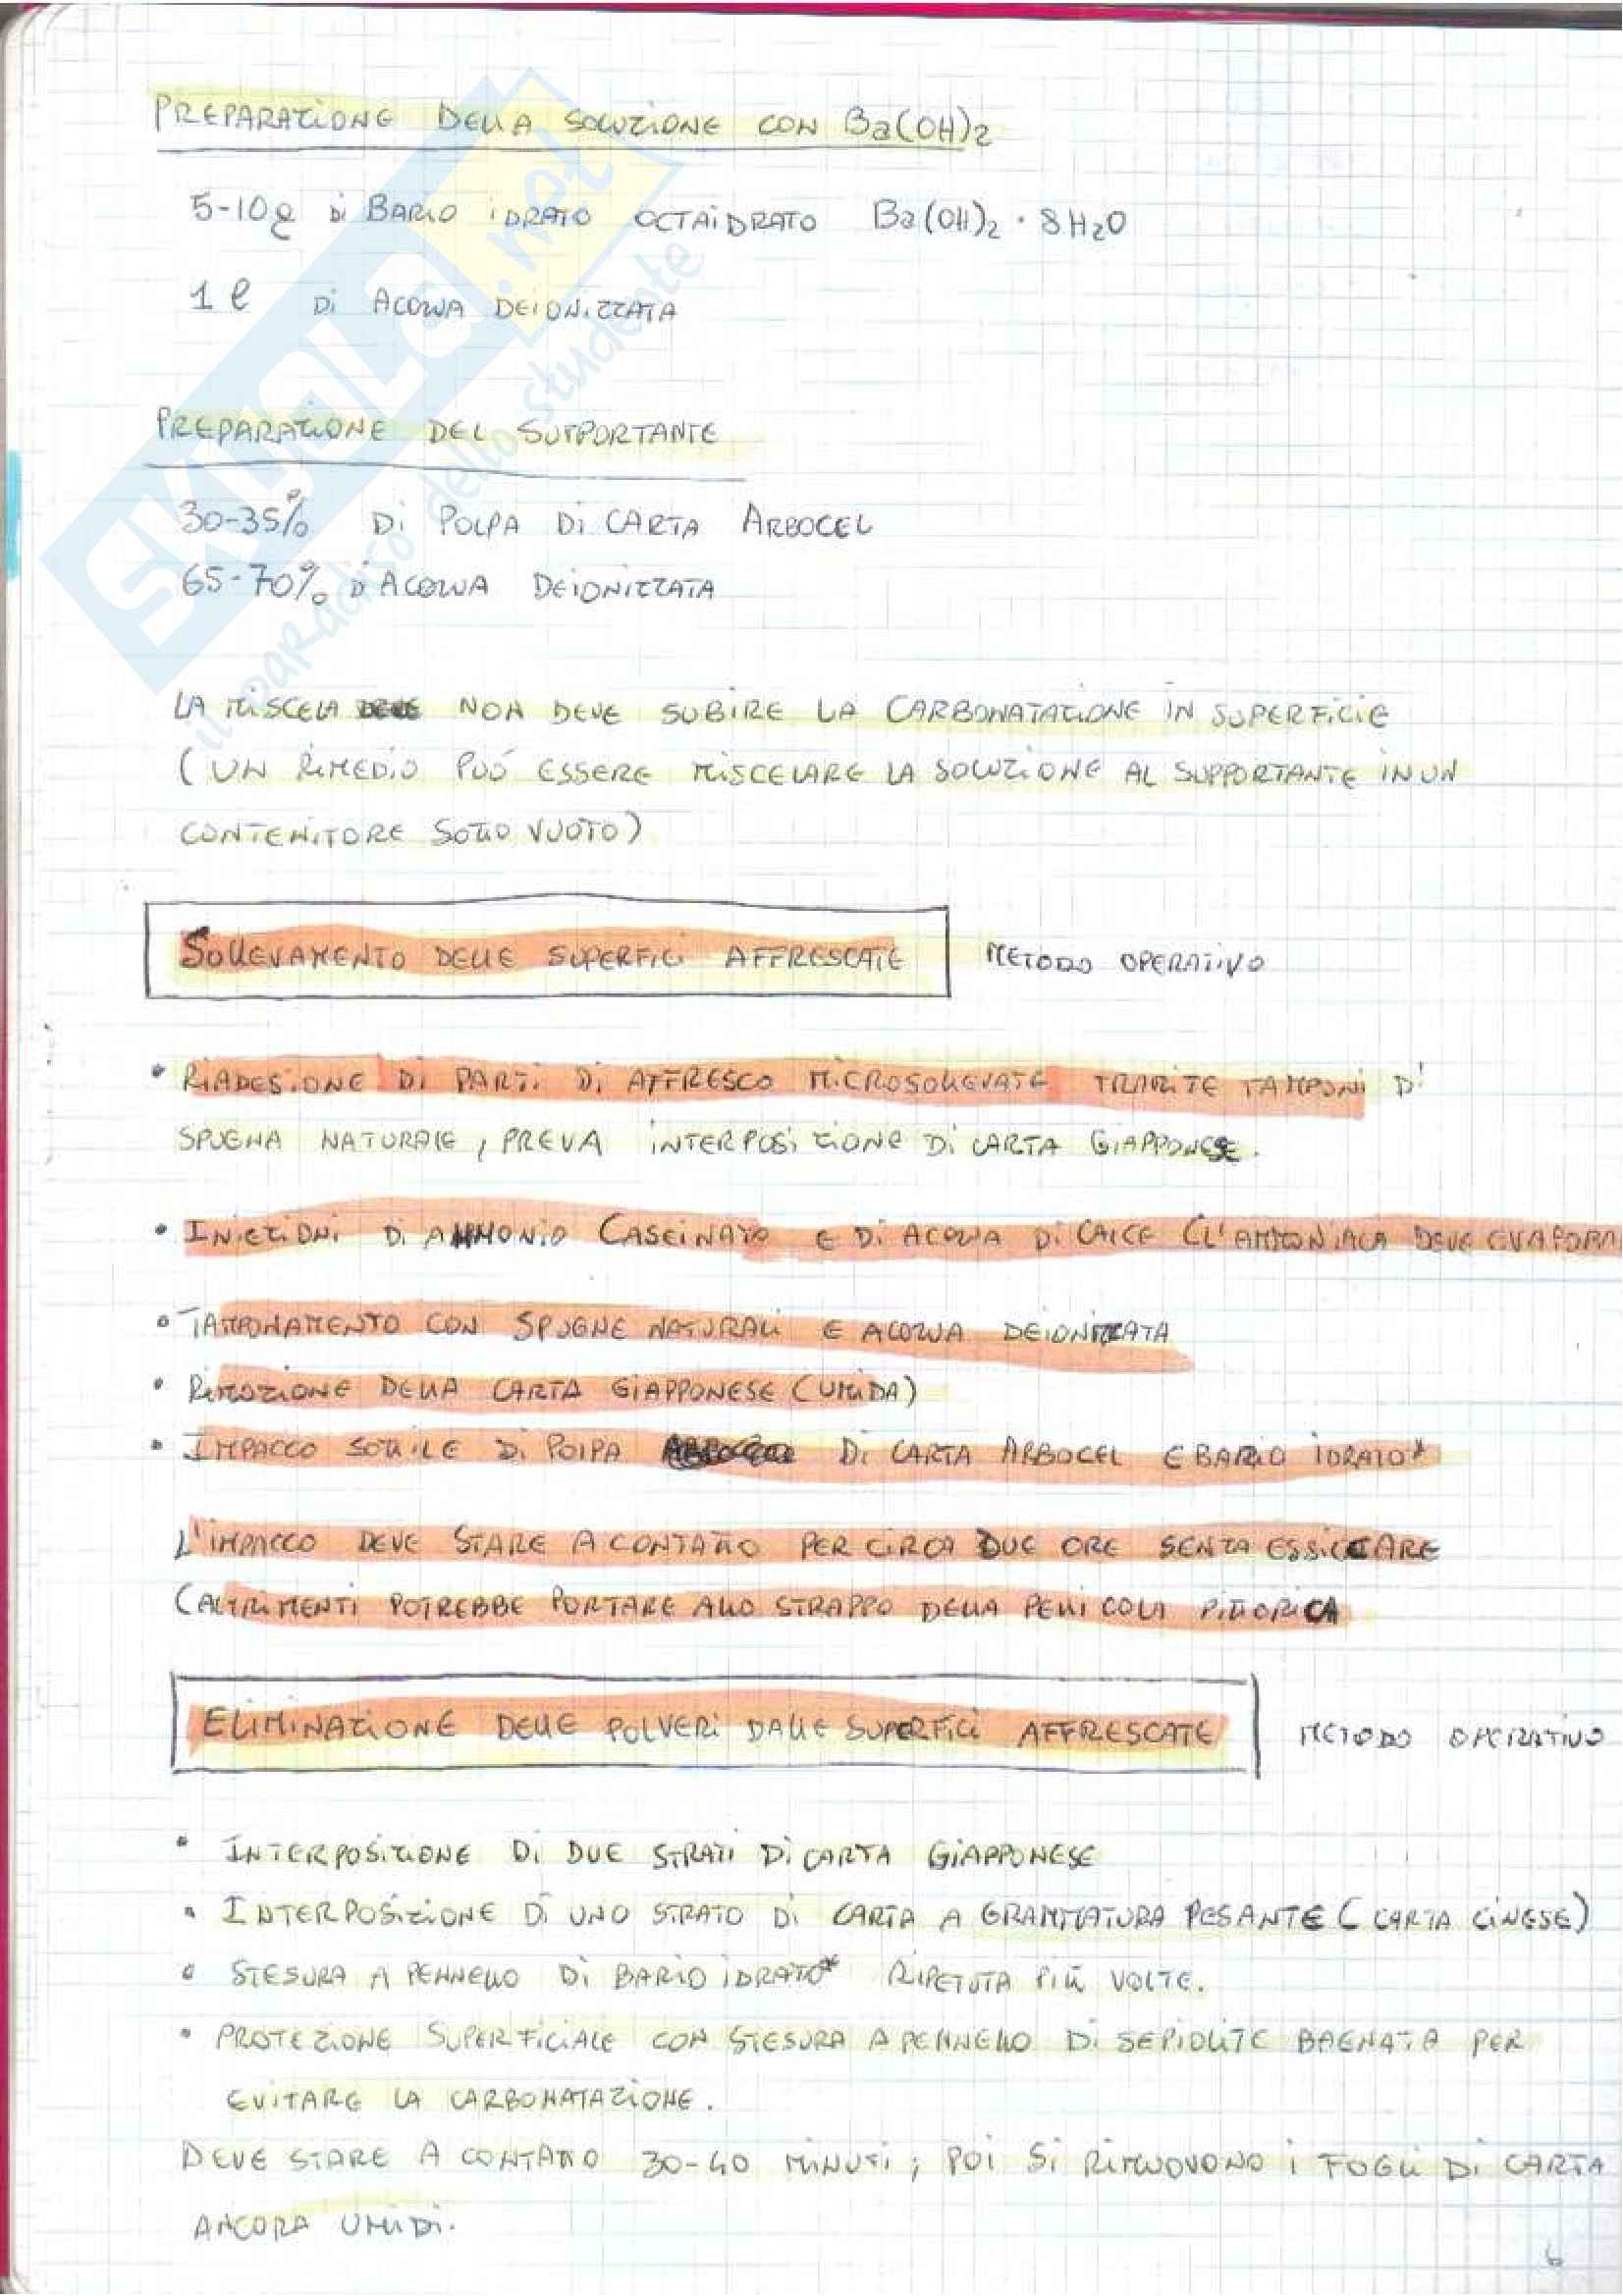 PREPARAZIONE DELLA SOLUZIONE CON Ba(OH)2
5-10g di BARIO IDRATO OCTAIDRATO Ba(OH)2 · 8H2O
1 l di ACQUA DEIONIZZATA
PREPARAZIONE DEL SUPPORTANTE
30-35% Di POLPA Di CARTA ARBOCEL
65-70% D'ACQUA DEIONIZZATA
LA MISCELA NON DEVE SUBIRE LA CARBONATAZIONE IN SUPERFICIE
(UN RIMEDIO PUÓ ESSERE MISCELARE LA SOLUZIONE AL SUPPORTANTE IN UN
CONTENITORE SOTTO VUOTO)
SOLLEVAMENTO DELLE SUPERFICI AFFRESCATE METODO OPERATIVO
• RIADESIONE DI PARTI DI AFFRESCO MICROSOLLEVATE TRAMITE TAMPONI DI
SPUGNA NATURALE, PREVA INTERPOSIZIONE DI CARTA GIAPPONESE.
• INIEZIONI DI AMMONIO CASEINATO E DI ACQUA DI CALCE (L'AMMONIACA DEVE EVAPORA
• TAMPONAMENTO CON SPUGNE NATURALI E ACQUA DEIONIZZATA
• RIMOZIONE DELLA CARTA GIAPPONESE (UMIDA)
• IMPACCO SOTTILE DI POLPA DI CARTA ARBOCEL E BARIO IDRATO*
L'IMPACCO DEVE STARE A CONTATTO PER CIRCA DUE ORE SENZA ESSICCARE
(ALTRIMENTI POTREBBE PORTARE ALLO STRAPPO DELLA PELLICOLA PITTORICA
ELIMINAZIONE DELLE POLVERI DALLE SUPERFICI AFFRESCATE METODO OPERATIVO
• INTERPOSIZIONE DI DUE STRATI DI CARTA GIAPPONESE
• INTERPOSIZIONE DI UNO STRATO DI CARTA A GRAMMATURA PESANTE (CARTA CINESE)
• STESURA A PENNELLO DI BARIO IDRATO* RIPETUTA PIÙ VOLTE.
• PROTEZIONE SUPERFICIALE CON STESURA A PENNELLO DI SEPIOLITE BAGNATA PER
EVITARE LA CARBONATAZIONE.
DEVE STARE A CONTATTO 30-40 MINUTI; POI SI RIMUOVONO I FOGLI DI CARTA
ANCORA UMIDI.
6
SKUOLA.net
il paradiso dello studente